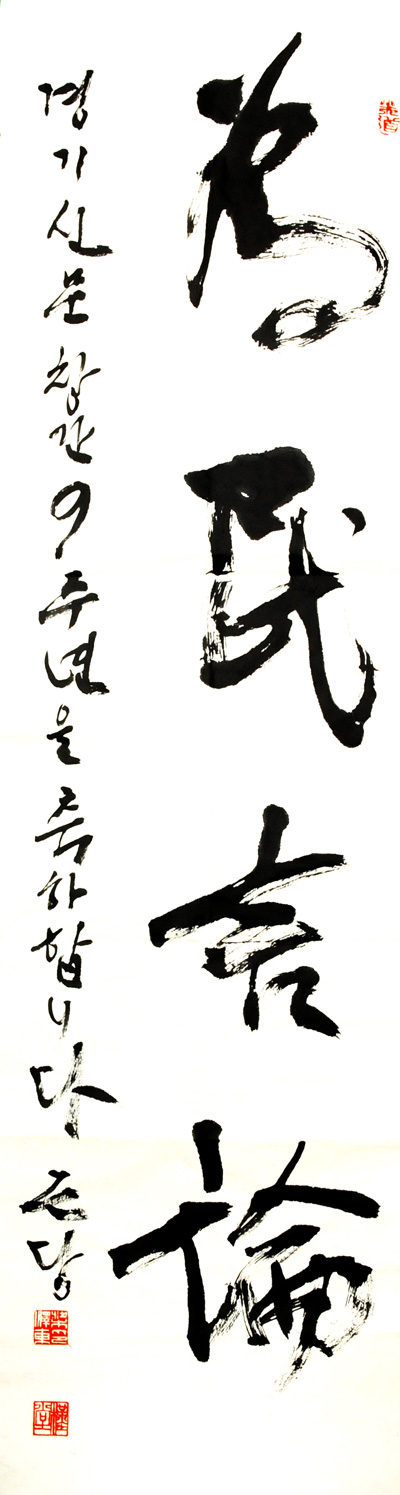 為民言論
경기신문 창간 9주년을 축하합니다 근당